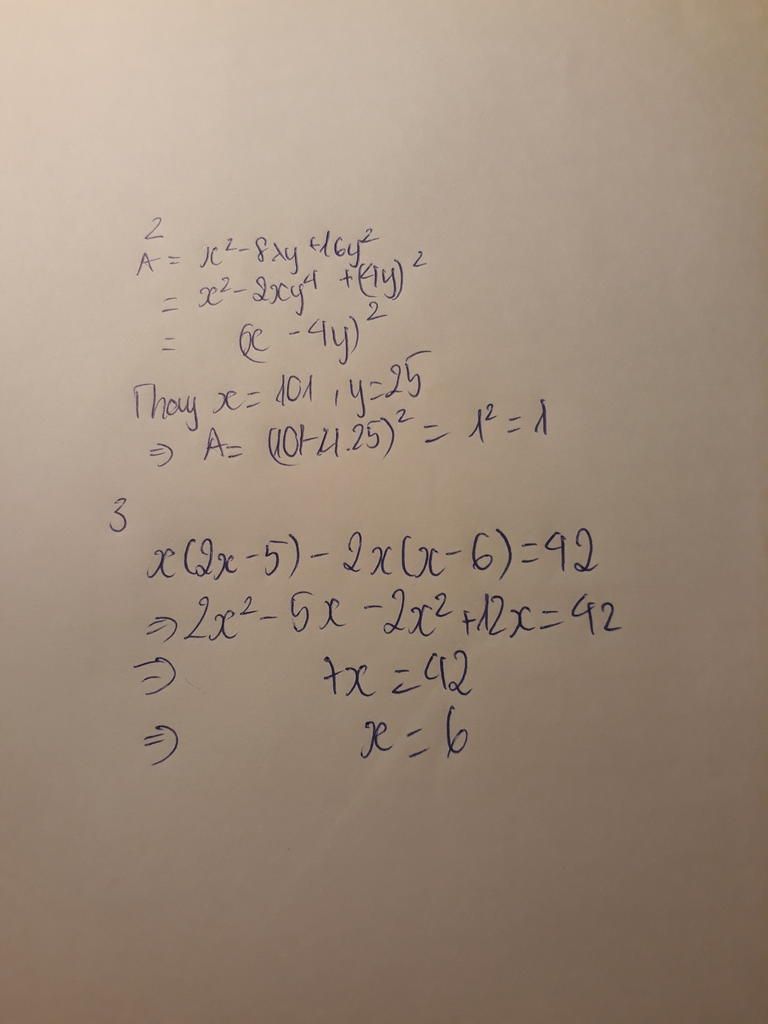 2
A = x² - 8xy + 16y²
= x² - 2xy4 + (4y)²
= (x - 4y)²
Thay x = 101, y = 25
⇒ A = (101-4.25)² = 1² = 1
3
x(2x - 5) - 2x(x - 6) = 42
⇒ 2x² - 5x - 2x² + 12x = 42
⇒ 7x = 42
⇒ x = 6